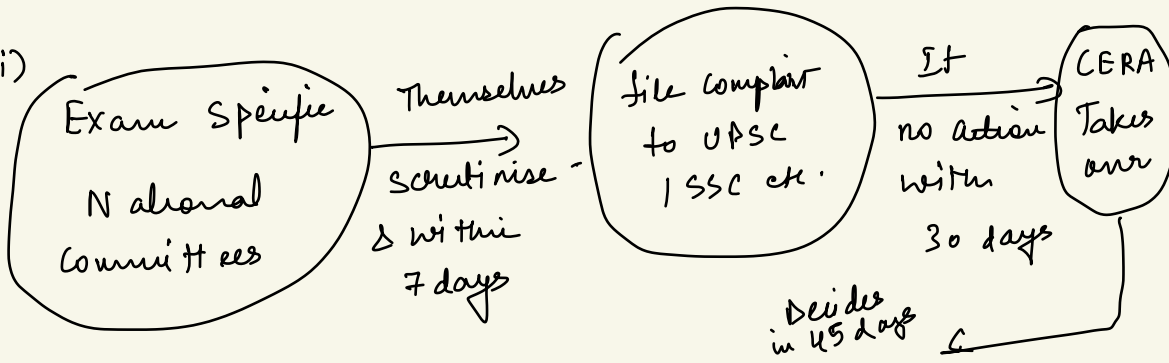 i)
Exam Specific
National
Committees
Themselves
scrutinise
& within
7 days
file complaint
to UPSC
/ SSC etc.
If
no action
within
30 days
CERA
Takes
over
Decides
in 45 days